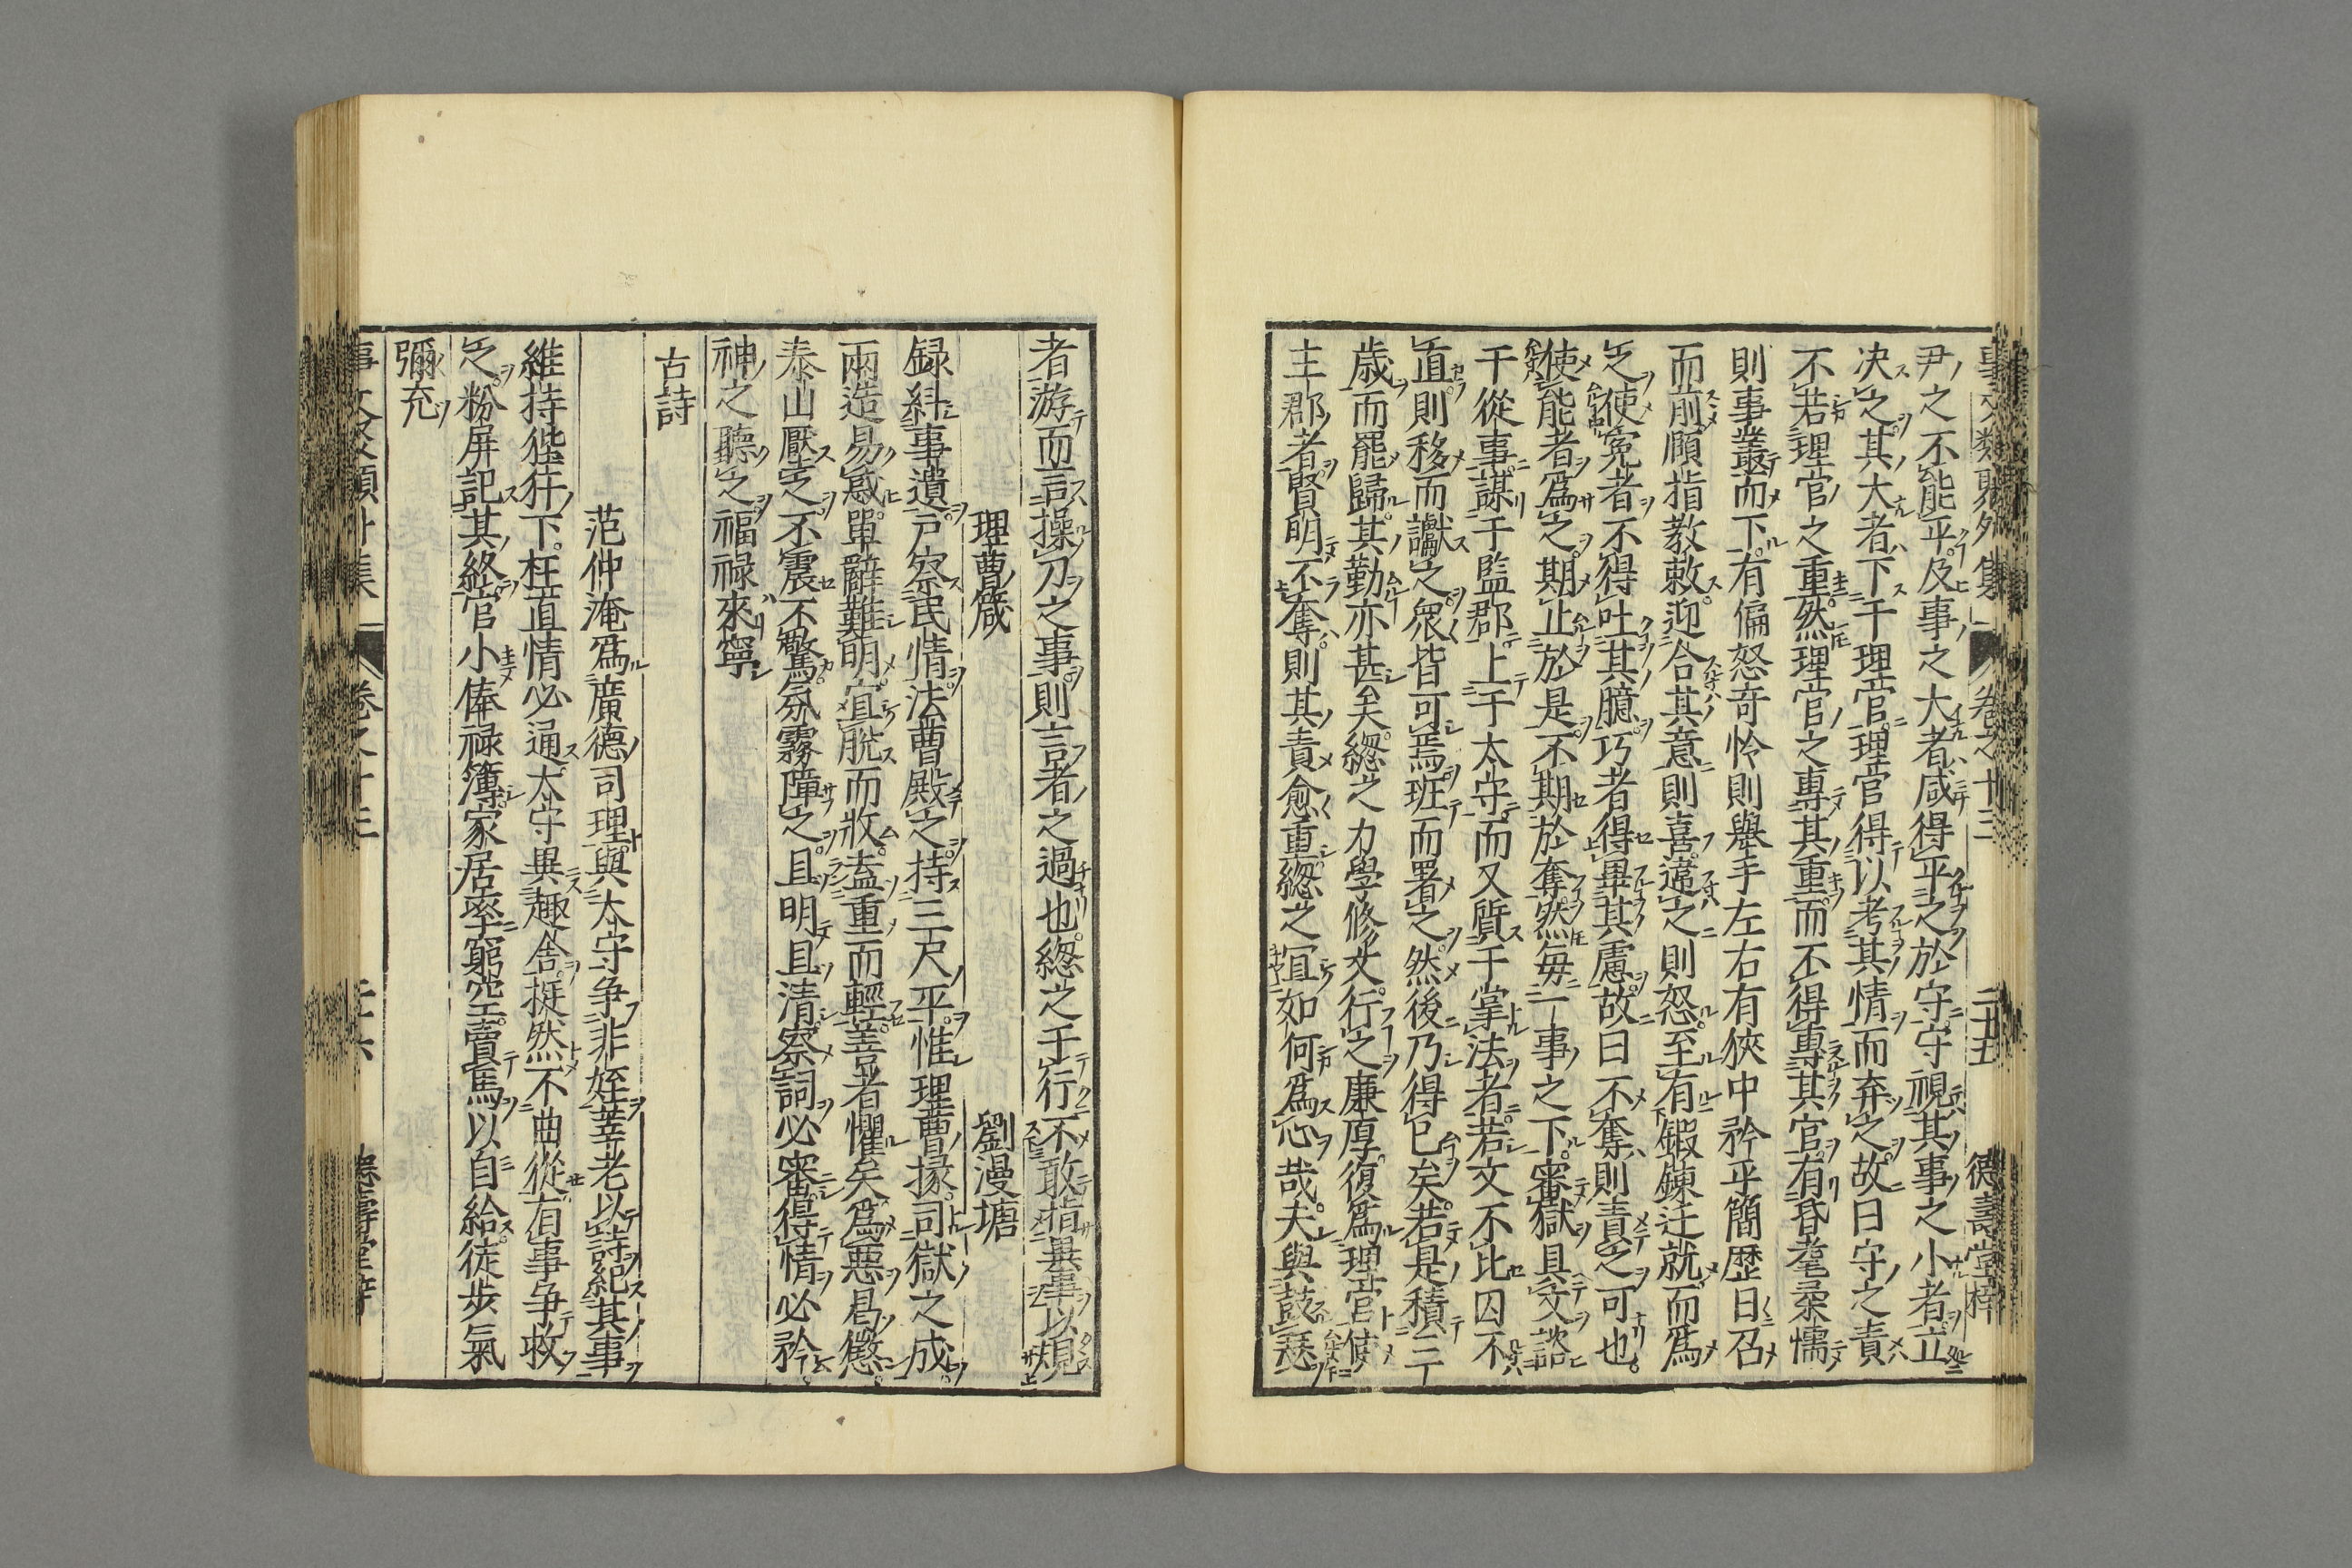 事文類聚外集 卷之十三 二十五 德壽堂梓
尹之不能平及事之大者咸得平之於守守視其事之小者立
决之其大者下于理官理官得以考其情而弃之故曰守之責
不若理官之重然理官之專其重而不得專其官有昏耄柔懦
則事叢而下有偏怒奇怜則舉手左右有狹中矜乎簡歷日召
而前願指教敕迎合其意則喜違之則怒至有鍜鍊迁就而爲
之使寃者不得吐其臆巧者得畢其慮故曰不奪則責之可也
使能者爲之期止於是不期於奪然毎一事之下審獄具文談
干從事謀于監郡上于太守而又質于掌法者若文不比囚不
直則移而讞之衆皆可焉班而署之然後乃得已矣若是積三
歳而罷歸其勤亦甚矣緫之力學修文行之廉厚復爲理官使
主郡者賢明不奪則其責愈重緫之宜如何爲心哉夫與鼓瑟
者游而言操刀之事則言者之過也緫之于行不敢指異事以規
理曹箴 劉漫塘
録紏事遺戸察民情法曹殿之持三尺平惟理曹掾司獄之成
兩造易惑單辭難明宜脱而收盍重而輕善者懼矣爲惡曷懲
泰山壓之不震不驚氛霧障之且明且清察詞必審得情必矜
神之聽之福禄來寧
古詩
范仲淹爲廣德司理與太守争非姪莘老以詩紀其事
維持狴犴下枉直情必通太守異趣舎挺然不曲從有事争救
之粉屏記其終官小俸禄簿家居率窮空賣馬以自給徒歩氣
彌充
卷之十三